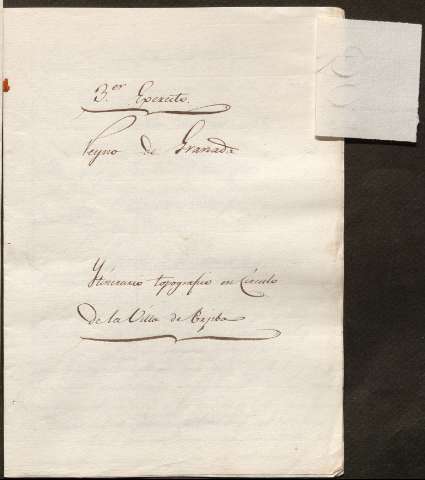 3.er Exercito.
Reyno de Granada
Itinerario topografio en Circulo
de la Villa de